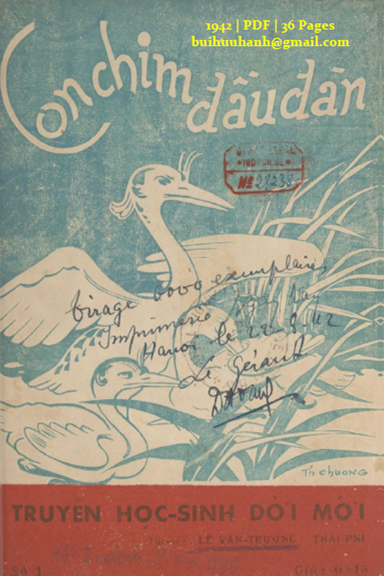 1942 | PDF | 36 Pages
buihuuhanh@gmail.com
Con chim
đầu đàn
INDOCHINE
Nº 29238
tirage 6000 exemplaires
Imprimerie
Hanoi le 22-9-42
Le Gérant
Th Chuong
TRUYỆN HỌC-SINH ĐỜI MỚI
LÊ VĂN-TRƯƠNG THÁI-PHỈ
Số 1
Giá: 0$15